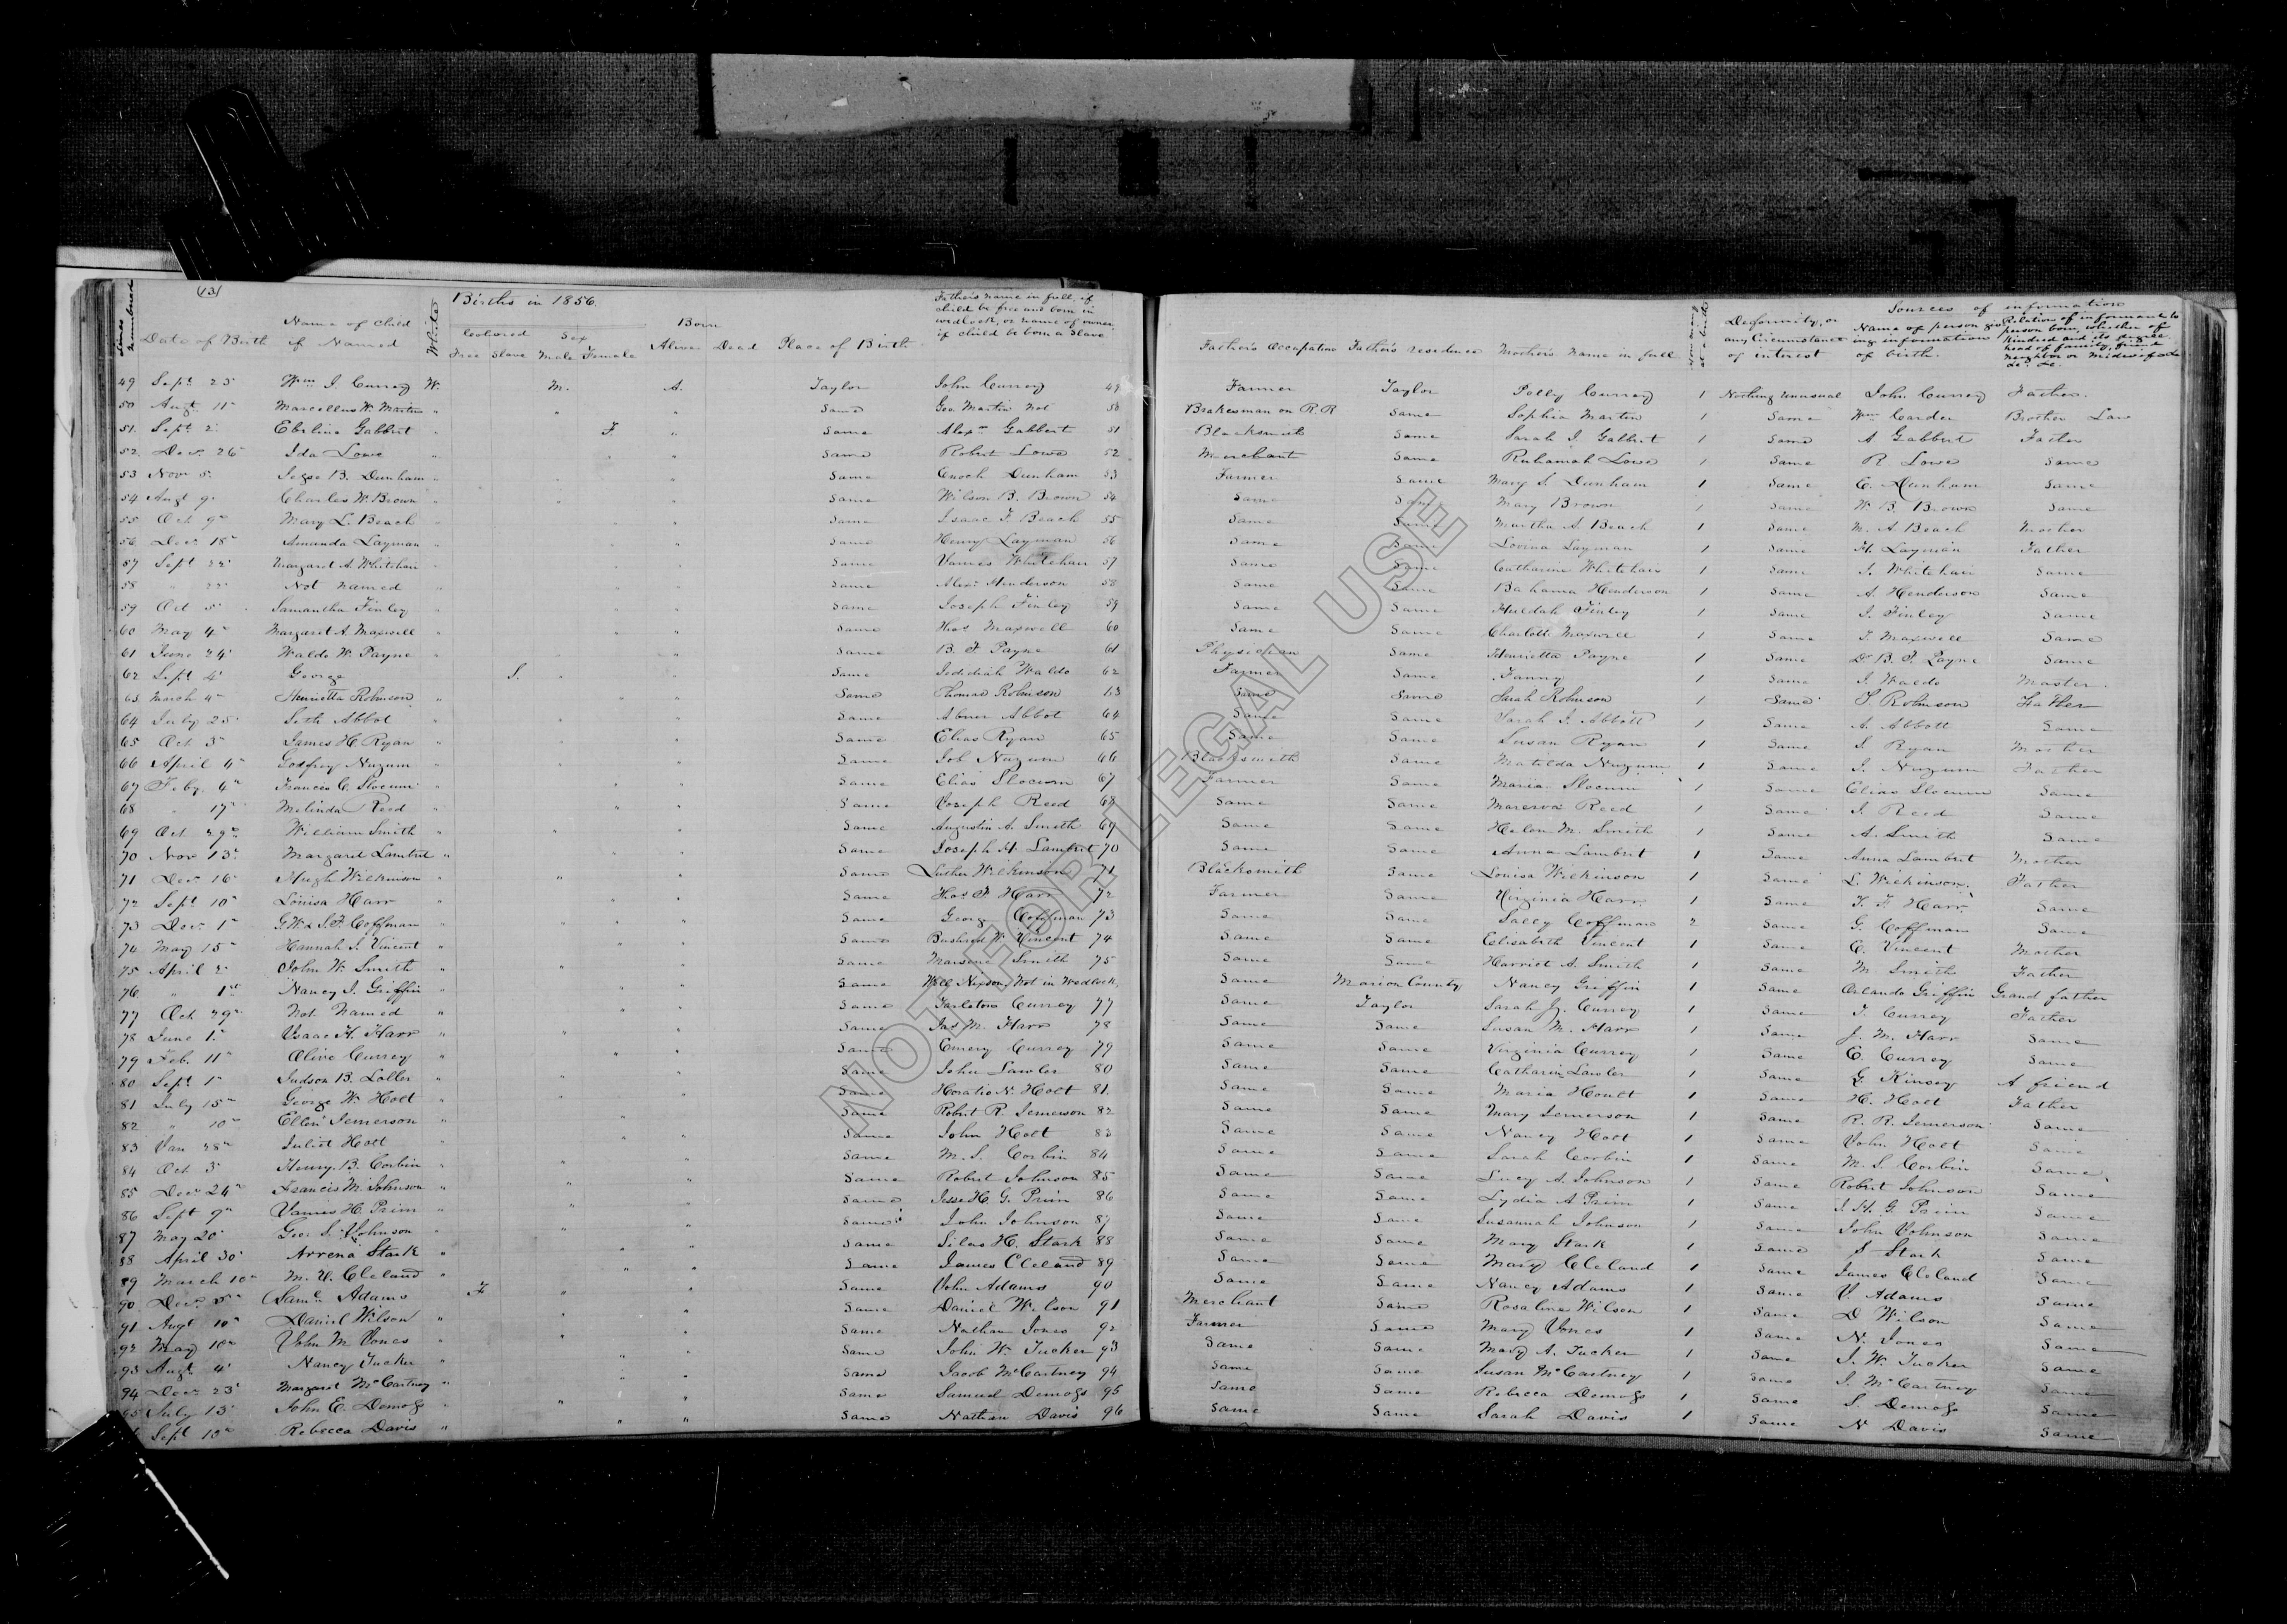 (13)
Births in 1856.
Lines numbered Date of Birth Name of child if Named White Colored Free Slave Sex Male Female Born Alive Dead Place of Birth Father's name in full, if child be free and born in wedlock, or name of owner if child be born a Slave
Father's Occupation Father's residence Mother's name in full Deformity, or any Circumstance of interest Sources of information Name of person giving information of birth. Relation of informant to person born, whether of kindred and its degree, head of family, friend neighbor or
49 Sept 25 Wm J. Currey W. M. A. Taylor John Currey 49 Farmer Taylor Polly Currey 1 Nothing unusual John Currey Father.
50 Augt 11 Marcellus W. Martin " " " Same Geo Martin not 50 Brakesman on R R Same Sophia Martin 1 Same Wm Carder Brother Law
51 Sept 2 Eveline Gabbert " F. " Same Alexr Gabbert 51 Blacksmith Same Sarah J. Gabbert 1 Same A Gabbert Father
52 Dec. 26 Ida Lowe " " " Same Robert Lowe 52 Merchant Same Ruhamah Lowe 1 Same R Lowe Same
53 Novr 5 B. Dunham " " " Same Enoch Dunham 53 Farmer Same Mary S. Dunham 1 Same E. Dunham Same
54 Augt 9 Charles W. Brown " " " Same Wilson B. Brown 54 Same Same Mary Brown 1 Same W. B. Brown Same
55 Oct 9 Mary L. Beach " " " Same Isaac F. Beach 55 Same Same Martha A. Beach 1 Same M. A Beach Mother
56 Decr 18 Amanda Layman " " " Same Henry Layman 56 Same Same Lovina Layman 1 Same H. Layman Father
57 Sept 22 Margaret A. Whitehair " " " Same James Whitehair 57 Same Same Catharine Whitehair 1 Same J. Whitehair Same
58 " 22 Not Named " " " Same Alexr Henderson 58 Same Same Bahama Henderson 1 Same A. Henderson Same
59 Oct 5 Samantha Finley " " " Same Joseph Finley 59 Same Same Huldah Finley 1 Same J. Finley Same
60 May 4 Margaret A. Maxwell " " " Same Thos Maxwell 60 Same Same Charlott Maxwell 1 Same T. Maxwell Same
61 June 24 Waldo W. Payne " " " Same B. F Payne 61 Physician Same Henrietta Payne 1 Same Dr B. F. Payne Same
62 Sept 4 George S. " " Same Jedediah Waldo 62 Farmer Same Fanny 1 Same J. Waldo Master.
63 March 4 Henrietta Robinson " " " Same Thomas Robinson 63 Same Same Sarah Robinson 1 Same T Robinson Father
64 July 25 Seth Abbot " " " Same Abner Abbot 64 Same Same Sarah J. Abbott 1 Same A. Abbott Same
65 Oct 3 James H. Ryan " " " Same Elias Ryan 65 Same Same Susan Ryan 1 Same S Ryan Mother
66 April 4 Godfrey Nuzum " " " Same Job Nuzum 66 Blacksmith Same Matilda Nuzum 1 Same J. Nuzum Father
67 Feby. 6 Francis C. Slocum " " " Same Elias Slocum 67 Farmer Same Maria Slocum 1 Same Elias Slocum Same
68 " 17 Melinda Reed " " " Same Joseph Reed 68 Same Same Reed 1 Same J. Reed Same
69 Oct 29 William Smith " " " Same Augustin A. Smith 69 Same Same Helen M. Smith 1 Same A. Smith Same
70 Nov 13 Margaret Lambert " " " Same Joseph H. Lambert 70 Same Same Anna Lambert 1 Same Anna Lambert Mother
71 Decr 16 Hugh Wilkinson " " " Same Luther Wilkinson 71 Blacksmith Same Louisa Wilkinson 1 Same L. Wilkinson Father
72 Sept 10 Louisa Harr " " " Same Thos F Harr 72 Farmer Same Virginia Harr 1 Same T. F. Harr Same
73 Decr 1 G. W. & S. F. Coffman " " " Same George Coffman 73 Same Same Sally Coffman 2 Same G. Coffman Same
74 May 15 Hannah S. Vincent " " " Same Bushrod W. Vincent 74 Same Same Elisabeth Vincent 1 Same E. Vincent Mother
75 April 2 John W. Smith " " " Same Smith 75 Same Same Harriet A. Smith 1 Same M. Smith Father
76 " 1st Nancy J. Griffin " " " Same Will Nixson, Not in Wedlock, Same Marion County Nancy Griffin 1 Same Orlando Griffin Grand father
77 Oct 29 Not Named " " " Same Tarleton Currey 77 Same Taylor Sarah Currey 1 Same T. Currey Father
78 June 1 Isaac H. Harr " " " Same Jas M. Harr 78 Same Same Susan M. Harr 1 Same J. M. Harr Same
79 Feb. 11 Olive Currey " " " Same Emery Currey 79 Same Same Virginia Currey 1 Same E. Currey Same
80 Sept 1 Judson B. Loller " " " Same John Lawler 80 Same Same Catharin Lawler 1 Same G. Kinsey A friend
81 July 15 George W. Holt " " " Same Horatio N. Holt 81 Same Same Maria Hoult 1 Same H. Holt Father
82 " 10 Ellen Jemerson " " Same Robert R. Jemerson 82 Same Same Mary Jemerson 1 Same R. R. Jemerson Same
83 Jan 28 Juliet Holt " " " Same John Holt 83 Same Same Nancy Holt 1 Same John Holt Same
84 Oct 3 Henry. B. Corbin " " " Same M. S. Corbin 84 Same Same Sarah Corbin 1 Same M. S. Corbin Same
85 Decr 24 Francis M. Johnson " " " Same Robert Johnson 85 Same Same Lucy A. Johnson 1 Same Robert Johnson Same
86 Sept 9 James H. Prim " " " Same Jesse H. G. Prim 86 Same Same Lydia A Prim 1 Same J. H. G. Prim Same
87 May 20 Geo. S. Johnson " " " Same John Johnson 87 Same Same Susannah Johnson 1 Same John Johnson Same
88 April 30 Arrena Stark " " " Same Silas H. Stark 88 Same Same Mary Stark 1 Same S Stark Same
89 March 10 M. V. Cleland " " " Same James Cleland 89 Same Same Mary Cleland 1 Same James Cleland Same
90 Decr 5 Saml Adams F " " Same John Adams 90 Same Same Nancy Adams 1 Same J. Adams Same
91 Augt 10 Daniel Wilson " " " Same Daniel Wilson 91 Merchant Same Rosaline Wilson 1 Same D Wilson Same
92 May 10 John M Jones " " " Same Nathan Jones 92 Farmer Same Mary Jones 1 Same N. Jones Same
93 Augt 4 Nancy Tucker " " " Same John W. Tucker 93 Same Same Mary A. Tucker 1 Same J. W. Tucker Same
94 Decr 23 Margaret McCartney " " " Same Jacob McCartney 94 Same Same Susan McCartney 1 Same J. McCartney Same
95 July 13 John E. Demoss " " " Same Samuel Demoss 95 Same Same Rebecca Demoss 1 Same S. Demoss Same
Sept 10 Rebecca Davis " " " Same Nathan Davis 96 Same Same Sarah Davis 1 Same N Davis Same
NOT FOR LEGAL USE